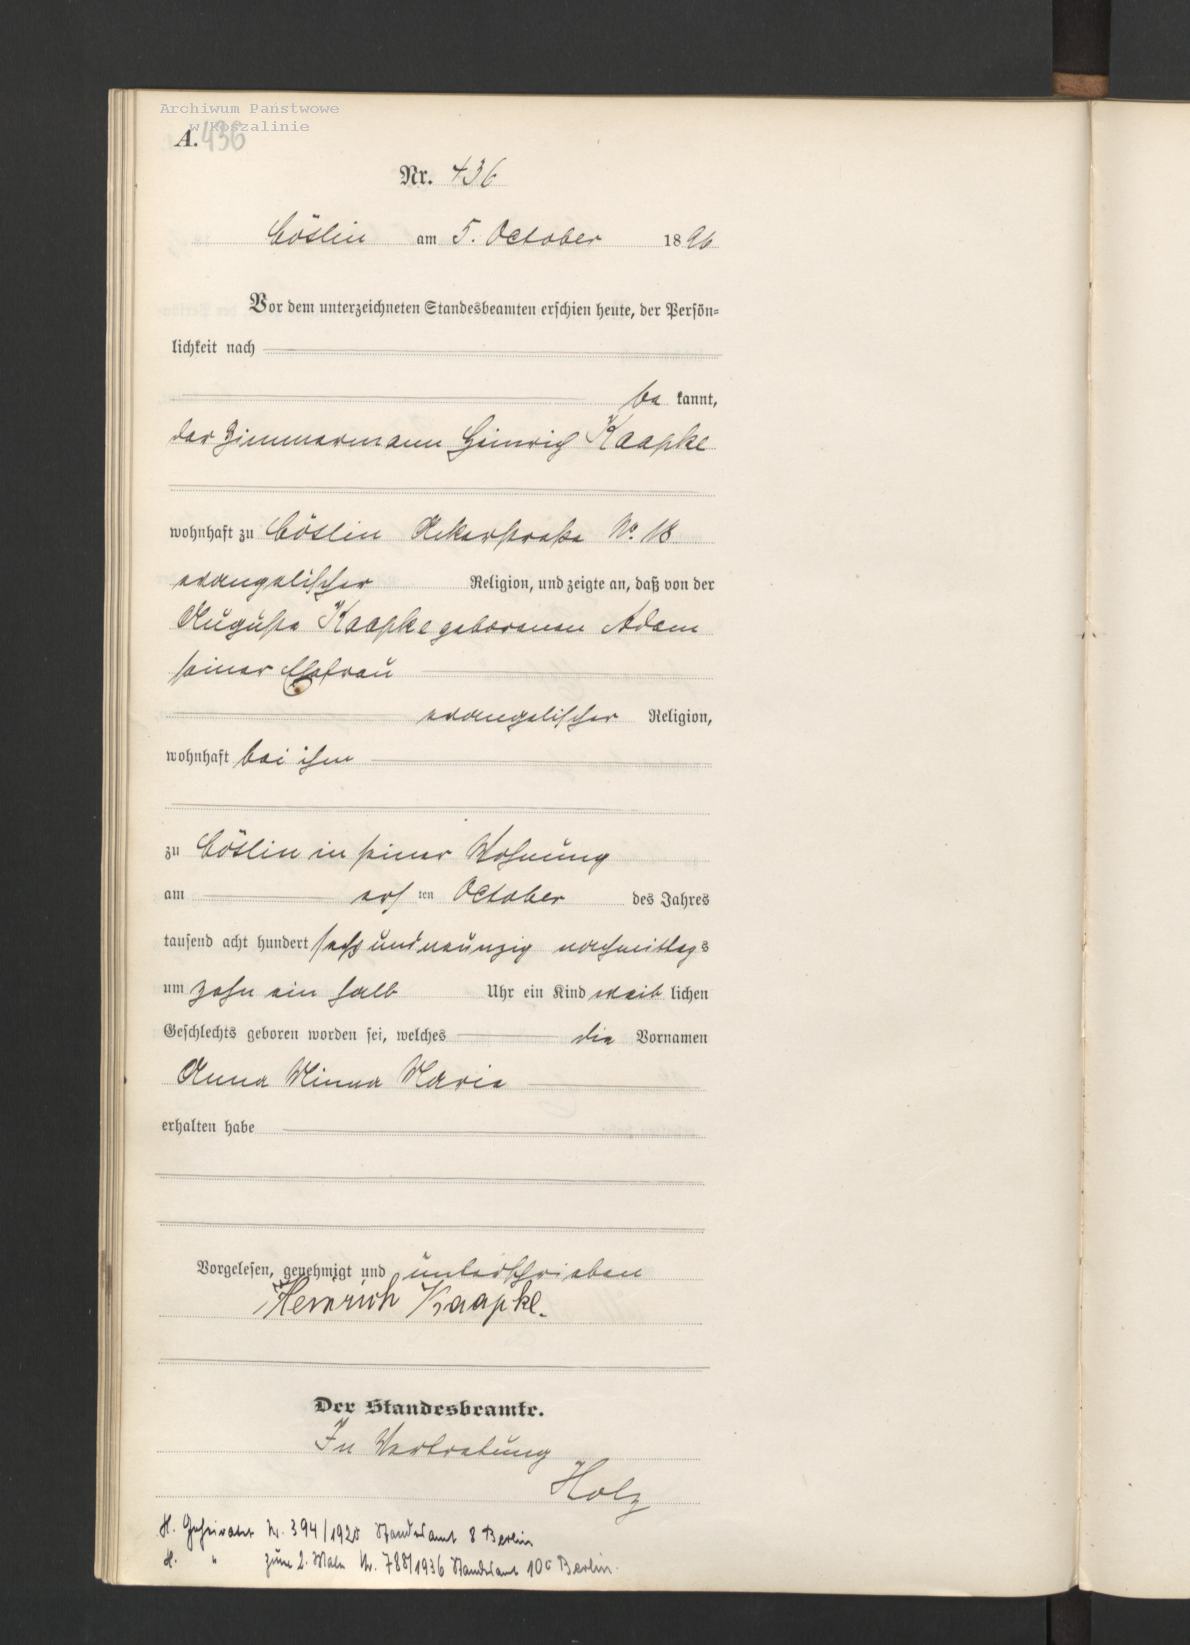 Archiwum Państwowe
w Koszalinie
A. 436
Nr. 436
Cöslin am 5. October 1896
Vor dem unterzeichneten Standesbeamten erschien heute, der Persön-
lichkeit nach
be kannt,
der Zimmermann Heinrich Kaapke
wohnhaft zu Cöslin Akerstraße No. 18
evangelischer Religion, und zeigte an, daß von der
Auguste Kaapke geborenen Adam
seiner Ehefrau
evangelischer Religion,
wohnhaft bei ihm
zu Cöslin in seiner Wohnung
am ersten October des Jahres
tausend acht hundert sechs und neunzig nachmittags
um zehn ein halb Uhr ein Kind weib lichen
Geschlechts geboren worden sei, welches die Vornamen
Anna Minna Marie
erhalten habe
Vorgelesen, genehmigt und unterschrieben
Heinrich Kaapke.
Der Standesbeamte.
In Vertretung
Holz
H. Geheiratet Nr. 394/1920 Standesamt 8 Berlin
H. " zum 2. Male Nr. 788/1936 Standesamt 10c Berlin.